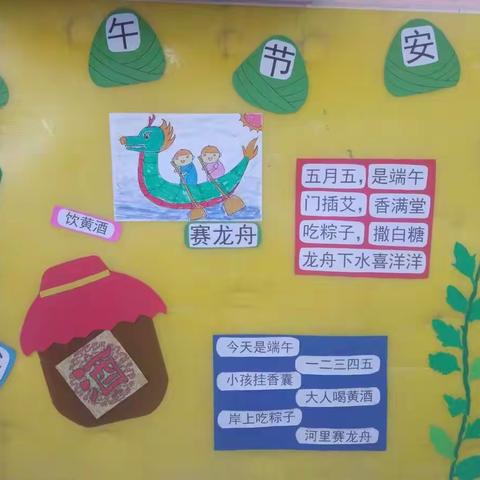 午 节 安
饮黄酒
赛龙舟
五月五，是端午
门插艾，香满堂
吃粽子，撒白糖
龙舟下水喜洋洋
酒
今天是端午
一二三四五
小孩挂香囊
大人喝黄酒
岸上吃粽子
河里赛龙舟